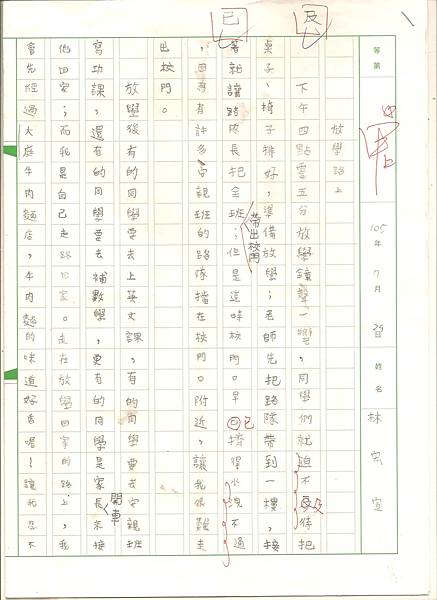 等第
甲上
105年7月29日
姓名
林宏宣
放學路上
下午四點零五分放學鐘聲一響，同學們就迫不及待把
桌子、椅子排好，準備放學；老師先把路隊帶到一樓，接
著就讓路隊長把全班帶出校門；但是這時校門口早已擠得水洩不通
，因為有許多安親班的路隊擋在校門口附近，讓我很難走
出校門。
放學後有的同學要去上英文課，有的同學要去安親班
寫功課，還有的同學要去補數學，更有的同學是家長開車來接
他回家；而我是自己走路回家。走在放學回家的路上，我
會先經過大庭牛肉麵店，牛肉麵的味道好香喔！讓我忍不
及
已